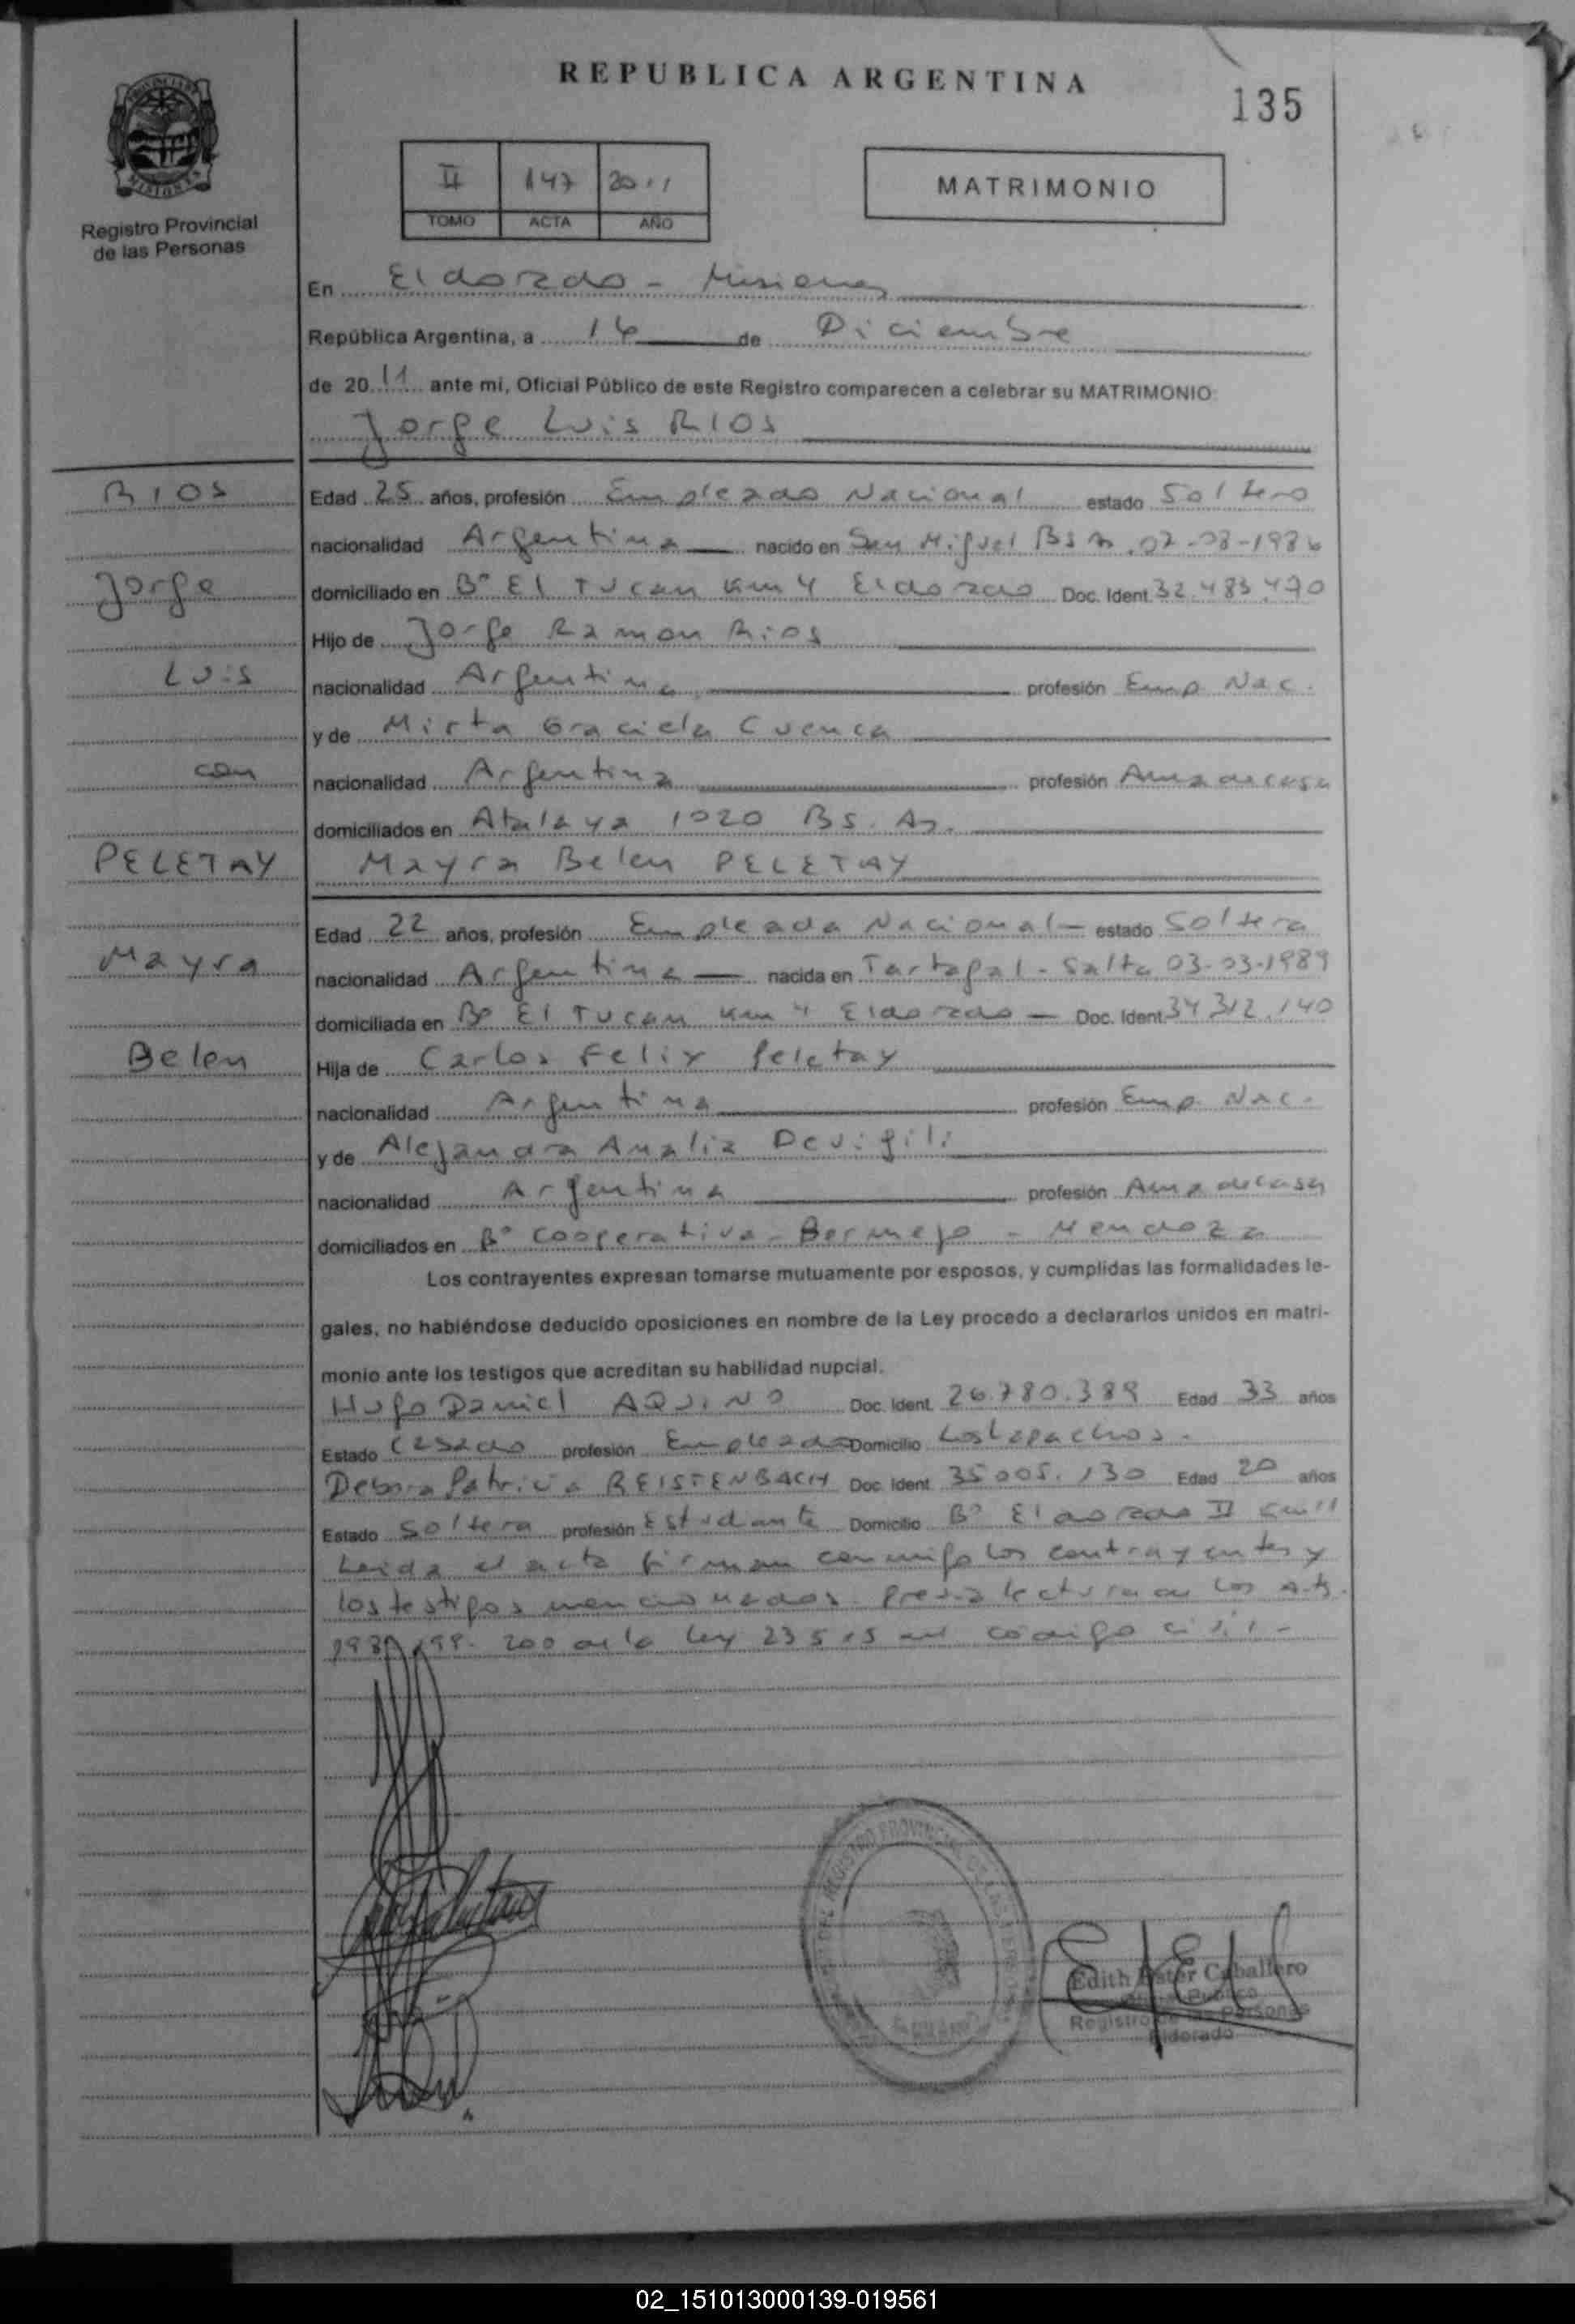 REPUBLICA ARGENTINA
135
Registro Provincial
de las Personas
II 147 2011
TOMO ACTA AÑO
MATRIMONIO
En Eldorado - Misiones
República Argentina, a 16 de Diciembre
de 2011 ante mi, Oficial Público de este Registro comparecen a celebrar su MATRIMONIO:
Jorge Luis RIOS
RIOS
Jorge
Luis
con
PELETAY
Mayra
Belen
Edad 25 años, profesión Empleado Nacional estado Soltero
nacionalidad Argentina nacido en San Miguel Bs As 07-08-1986
domiciliado en B° El Tucan Km 4 Eldorado Doc. Ident. 32.483.470
Hijo de Jorge Ramon Rios
nacionalidad Argentina profesión Emp Nac.
y de Mirta Graciela Cuenca
nacionalidad Argentina profesión Ama de casa
domiciliados en Atalaya 1020 Bs. As.
Mayra Belen PELETAY
Edad 22 años, profesión Empleada Nacional - estado Soltera
nacionalidad Argentina nacida en Tartagal - Salta 03-03-1989
domiciliada en B° El Tucan Km 4 Eldorado - Doc. Ident. 34.312.140
Hija de Carlos Felix Peletay
nacionalidad Argentina profesión Emp. Nac.
y de Alejandra Analia Devigili
nacionalidad Argentina profesión Ama de casa
domiciliados en B° Cooperativa - Bermejo - Mendoza
Los contrayentes expresan tomarse mutuamente por esposos, y cumplidas las formalidades le-
gales, no habiéndose deducido oposiciones en nombre de la Ley procedo a declararlos unidos en matri-
monio ante los testigos que acreditan su habilidad nupcial.
Hugo Daniel AQUINO Doc. Ident. 26.780.389 Edad 33 años
Estado Casado profesión Empleado Domicilio Los Lapachos.
Debora Patricia REISTENBACH Doc. Ident. 35005.130 Edad 20 años
Estado Soltera profesión Estudiante Domicilio B° Eldorado II Km 11
Leida el acta firman conmigo los contrayentes y
los testigos mencionados. Previa lectura de los Arts.
198, 199. 200 de la Ley 23515 del código civil -
Edith Ester Caballero
Oficial Publico
Registro de las Personas
Eldorado
02_151013000139-019561